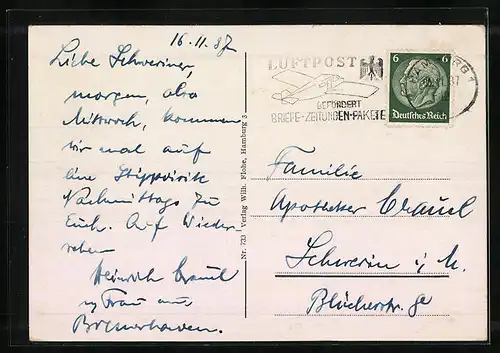 16.11.37
Liebe Schweriner,
morgen, also
Mittwoch, kommen
wir mal auf
eine Stippvisite
Nachmittags zu
Euch. Auf Wieder-
sehen
Heinrich
u. Frau aus
Bremerhaven.
Nr. 733 Verlag Wilh. Flohe, Hamburg 3
LUFTPOST
BEFÖRDERT
BRIEFE-ZEITUNGEN-PAKETE
HAMBURG 1
6 6
Deutsches Reich
Familie
Apotheker
Schwerin i. M.
Blücherstr.